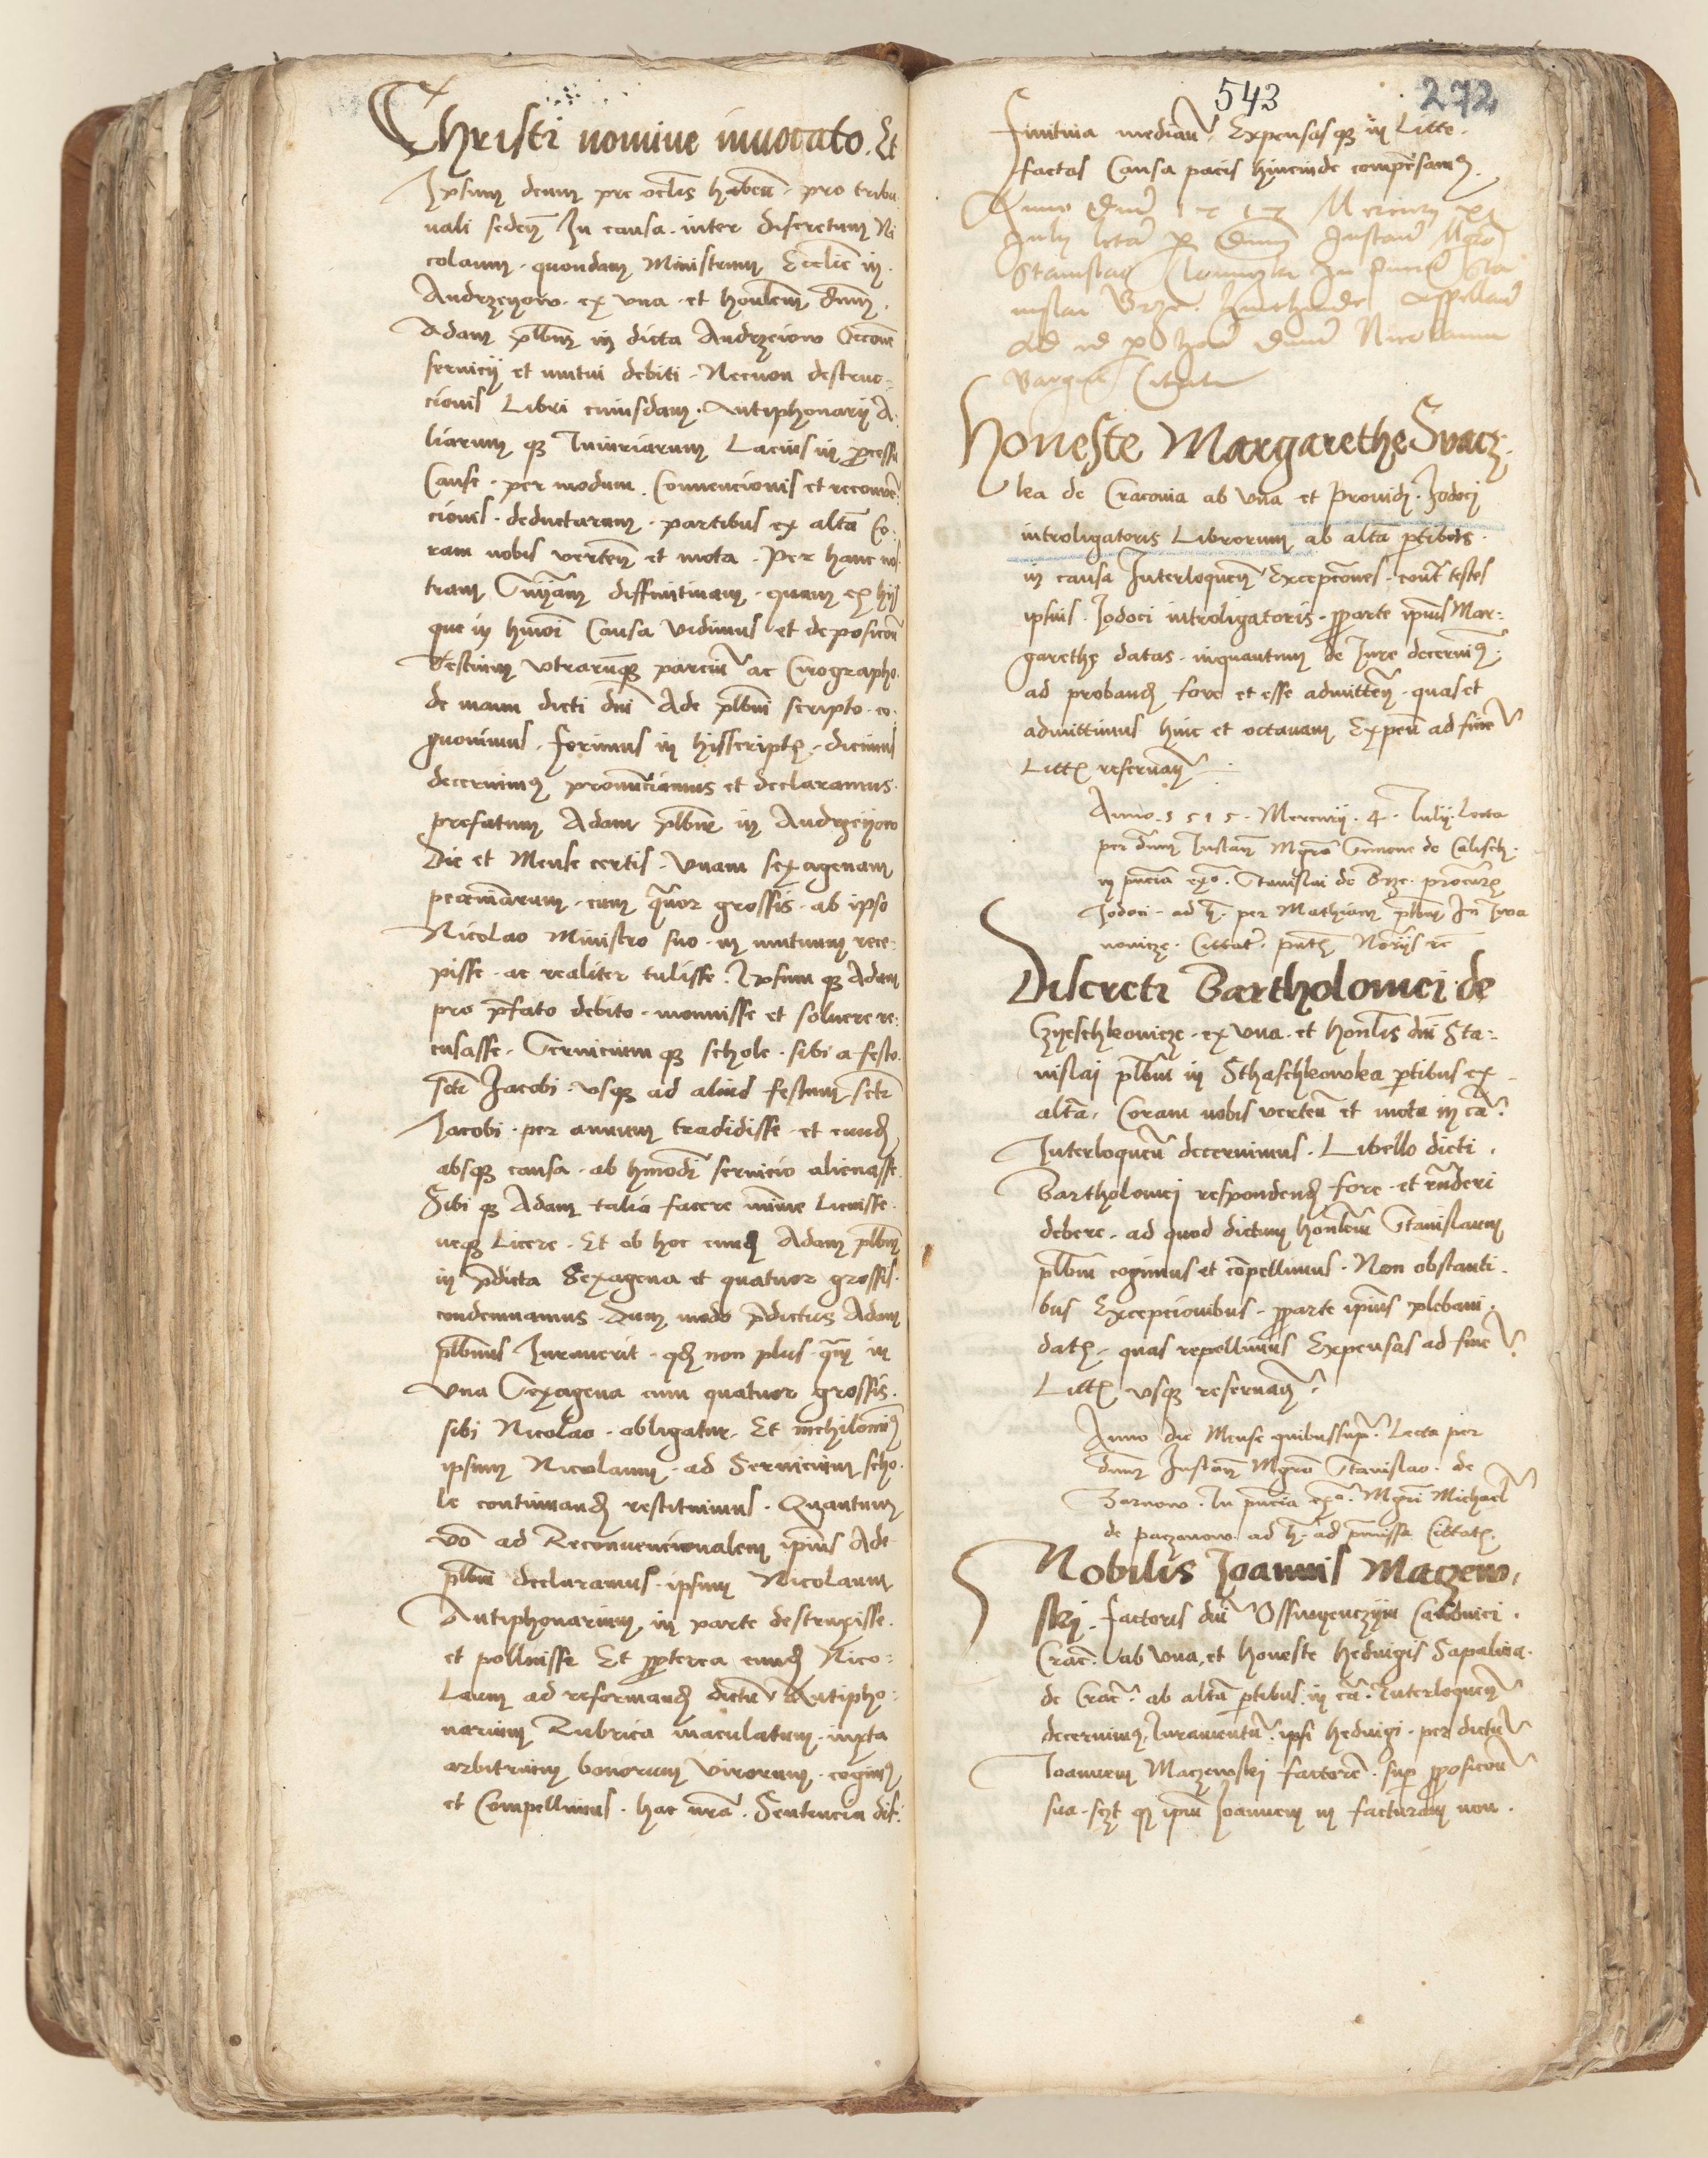 Christi nomine inuocato. Et
Ipsum deum pre oclis habeñ. pro tribu
nali sedeñ In causa. inter discretum Ni
colaum. quondam Ministrum Ecclie in.
Andrzeyow. ex vna. et honlem dnm.
Adam plbm in dicta Andrzeiow Occone
seruicij et mutui debiti. Necnon destruc-
cionis Libri cuiusdam. Antiphonarij A.
liarum qz Iniuriarum Lacius in processu
Cause. per modum. Conuencionis et reconue
cionis. deductarum. partibus ex altã Co.
ram nobis verteñ et mota. Per hanc nos
tram Snїam diffinitiuam. quam ex hijs
que in hmoi Causa vidimus et deposicoñ
Testium vtrarumqz parciũ ac Cirographo.
de manu dicti dni Ade plbni scripto. co.
gnouimus. ferimus in hijsscriptꝭ. dicimus
decernimꝰ pronunciamus et declaramus.
prefatum Adam plbm in Andrzeyow
Die et Mense certis. Vnam sexagenam
pecuniarum. cum quãor grossis. ab ipso
Nicolao Ministro suo. in mutuum rece-
pisse. ac realiter tulisse. Ipsum qz Adam
pro p̃fato debito. monuisse et soluere re-
cusasse. Seruicium qz schole. sibi a festo.
scti Jacobi. vsqz ad aliud festum scti
Jacobi. per annum tradidisse. et eundꝫ
absqz causa. ab hmodi seruicio alienasse.
Sibi qz Adam talia facere minime Licuisse.
neqz Licere. Et ob hoc eundꝫ Adam plbm
in p̃dicta Sexagena et quatuor grossis.
condemnamus. Dum modo p̃dictus Adam
plbnus Iurauerit. qdꝫ non plus quã in
Vna Sexagena cum quatuor grossis.
sibi Nicolao. obligatur. Et nichilominꝰ
ipsum Nicolaum. ad Seruicium scho.
le continuandꝫ restituimus. Quantum
vo ad Reconuencionalem ipius Ade
plbni declaramus. ipsum Nicolaum
Antiphonarium in parte destruxisse.
et polluisse Et propterea eundꝫ Nico-
laum ad reformandꝫ dictũ Antipho-
narium Rubrica maculatum. iuxta
arbitrium bonorum virorum. cogimꝰ
et Compellimus. hac nrã. Sentencia dif.
543 272
finitiua mediañ. Expensas qz in Litte.
factas Causa pacis hincinde compesamꝰ.
Anno Dni 1515 Mercurij xi
July lcta p Dnm Instan Mgro
Stanislao in Stã
nislai Brze
ad id p Dnm Nicolaum
Citatũ
Honeste Margarethe Svacz.
lka de Cracouia ab Vna et Prouidi. Jodoci
introligatoris Librorum ab altã ptibus.
in causa Interloqueñ Excepcones. cont testes
ipsius. Jodoci introligatoris. pparte ipius Mar-
garethe datas. inquantum de Iure decernimꝰ.
ad probandꝫ fore et esse admitteñ. quas et
admittimus hinc et octauam Expeñ ad finẽ
Littꝭ reseruañ.
Anno. 1515. Mercurij. 4. Iulij. Lecta
per dnm Instañ Mgro Simone de Calisch.
in pncia exo. Stanislai de Brze. procurꝭ
Jodoci. ad h. per Mathiam plbm In Iwa
nouicze. Cittatꝭ. pntꝭ Norijs rc
Discreti Bartholomei de
Czyeschkowicze. ex vna. et honlis dni Sta-
nislaj plbni in Sthaschkowka ptibus ex
altã. Coram nobis verteñ et mota in cã.
Interloqueñ decernimus. Libello dicti.
Bartholomej respondendꝫ fore. et rnderi
debere. ad quod dictum honlem Stanislaum
plbm cogimus et cõpellimus. Non obstanti.
bus Excepcionibus. pparte ipius plebani.
datꝭ. quas repellimus Expensas ad finẽ
Littꝭ vsqz reseruañ.
Anno die Mense quibussupꝰ. Lecta per
dnm Instañ Mgro Stanislao. de
Tarnow. In pncia exo. Mgri Michaeł
de paczanow. ad h. ad pmissa Cittatꝭ.
Nobilis Joannis Maczew,
skj. factoris dni Osswyenczym Canonici.
Crac̃. ab Vna, et honeste hedwigis Sapalina.
de Crac̃. ab altã ptibus. in cã. Interloqueñ
decernimꝰ. Iuramentũ. ipsi hedwigi. per dictũ
Joannem Maczewskj factorẽ. sup pposicoñ
sua. sczt qz ipm Joannem in facturam non.